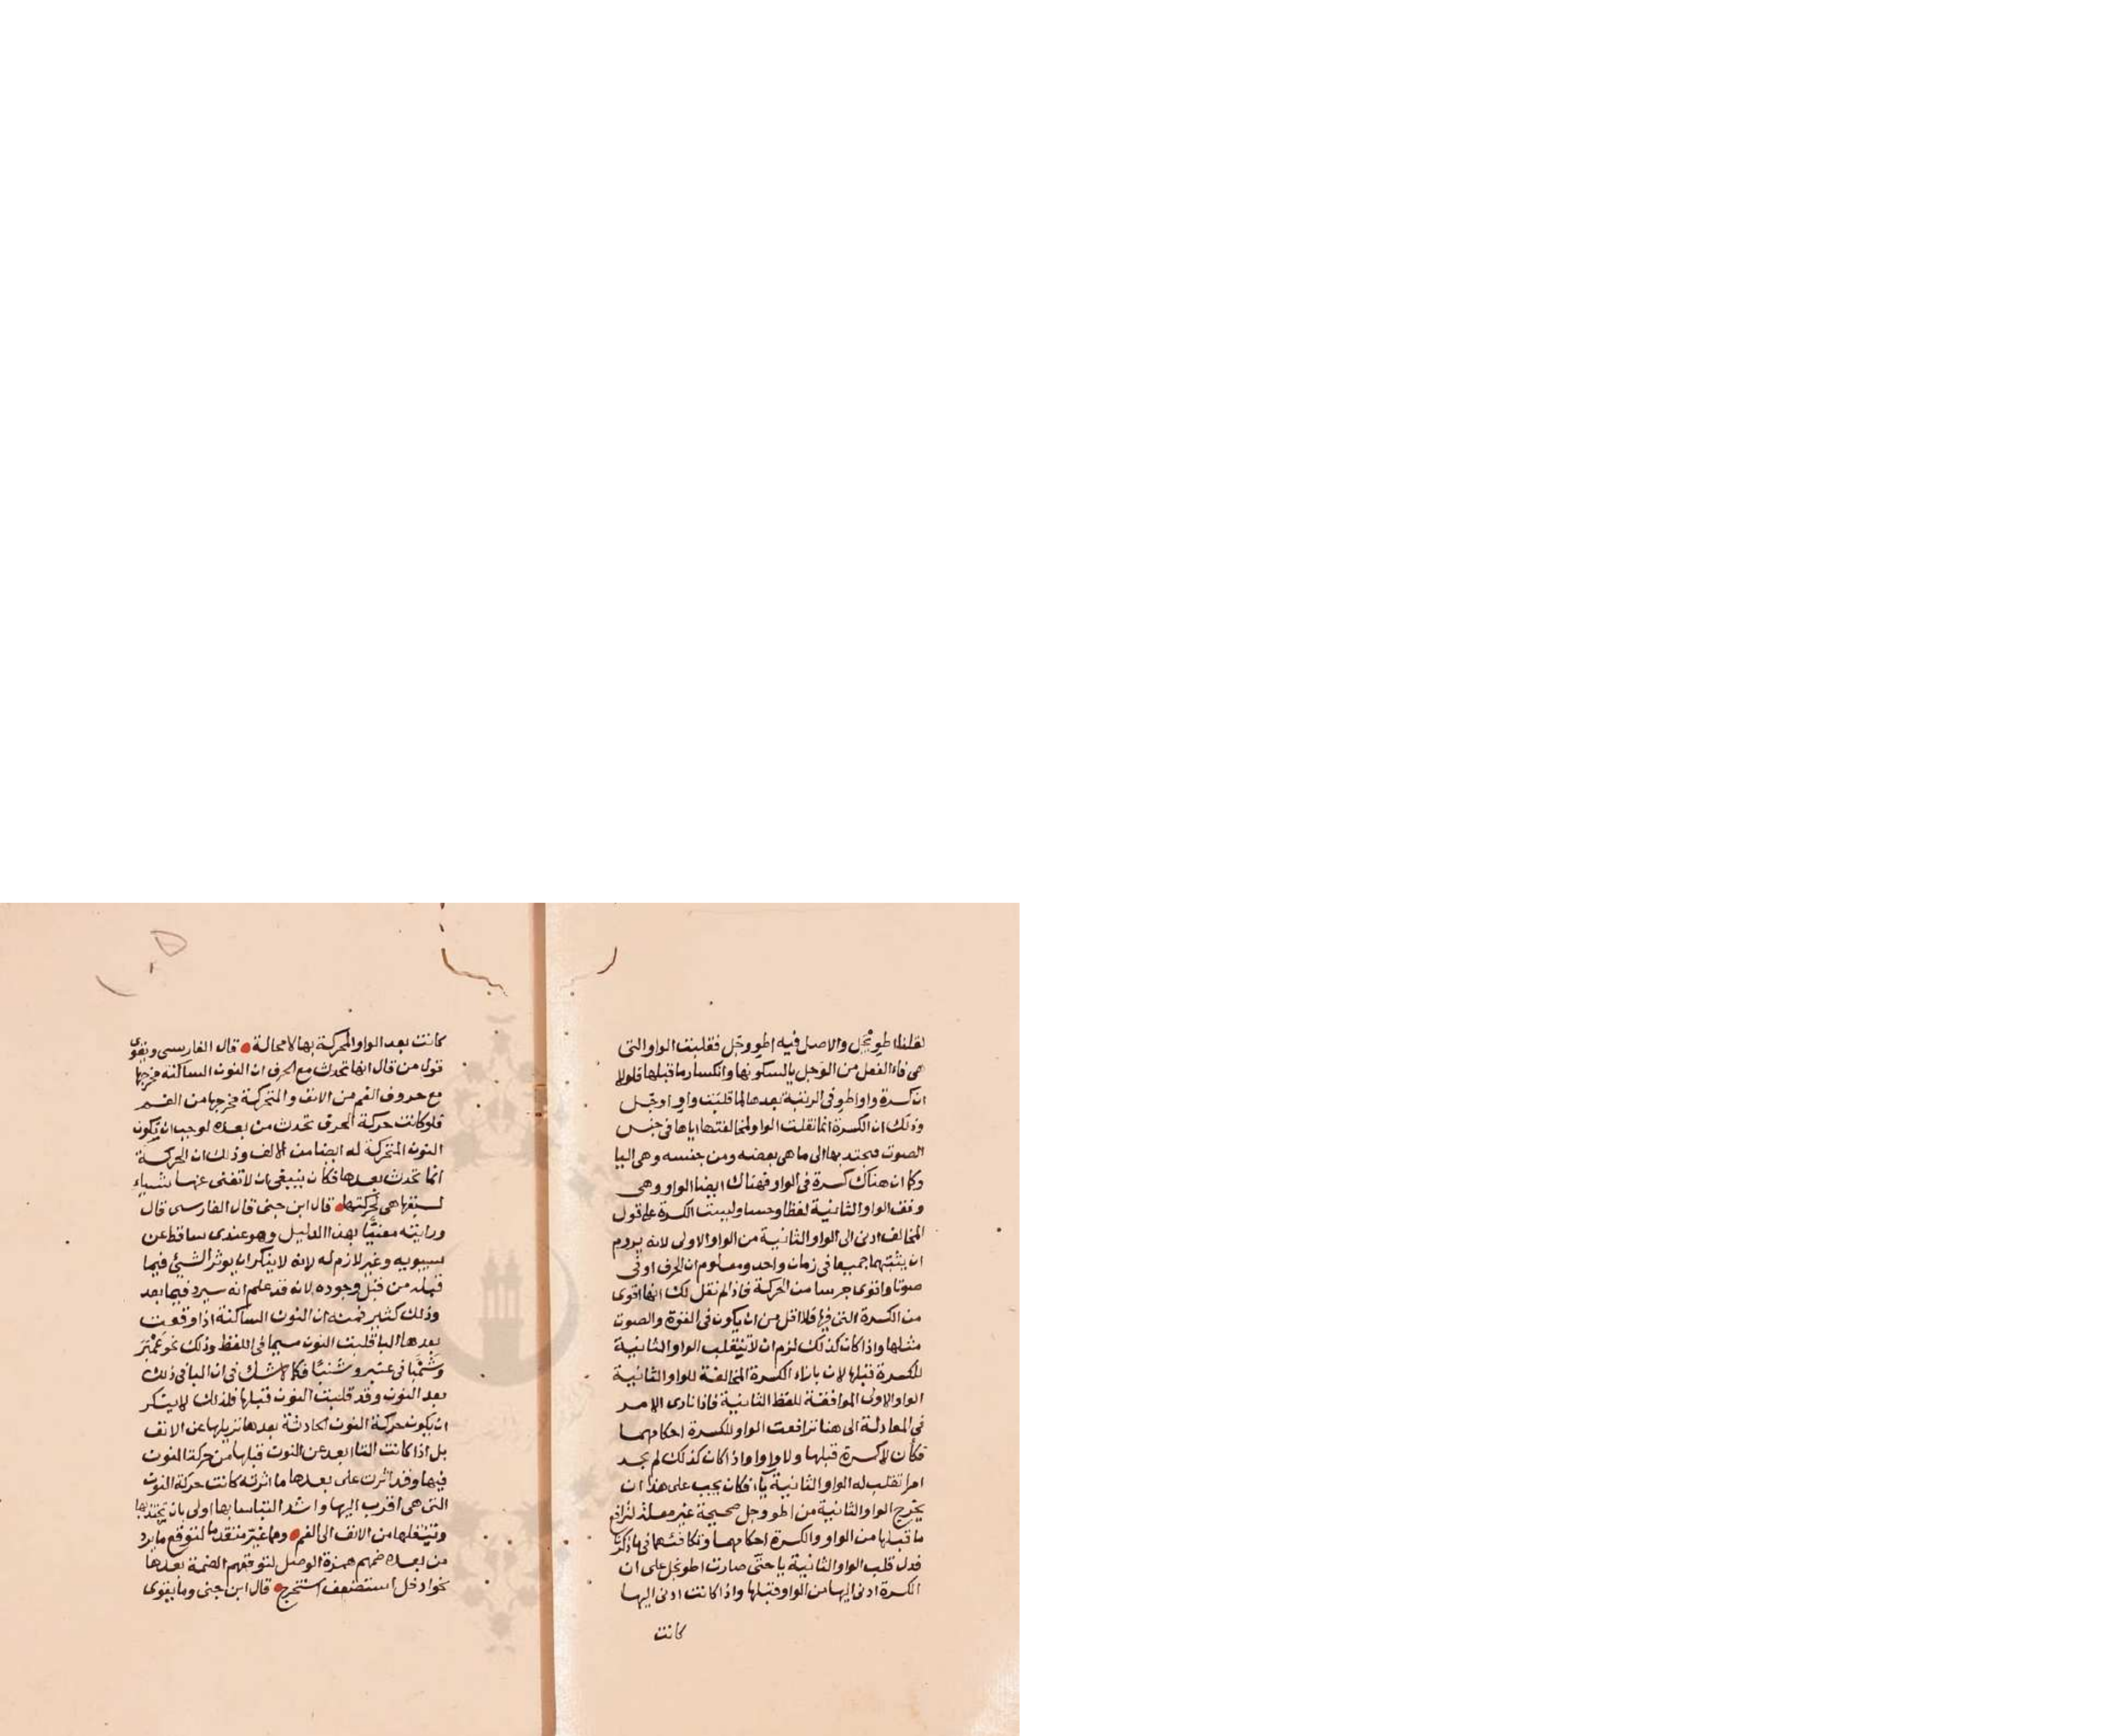 لقلنا اطويجل والاصل فيه اطووجل فقلبت الواو التى
هى فاء الفعل من الوجل يا لسكونها وانكسار ما قبلها فلولا
ان كسرة واو اطو فى الرتبة بعدها لما قلبت واو اوجل
وذلك ان الكسرة انما تقلب الواو لمخالفتها اياها فى جنس
الصوت فتجتذبها الى ما هى بعضه ومن جنسه وهى اليا
وكما ان هناك كسرة فى الواو فهناك ايضا الواو وهى
وفق الواو الثانية لفظا وحسا وليست الكسرة على قول
المخالف ادنى الى الواو الثانية من الواو الاولى لانه يروم
ان يثبتهما جميعا فى زمان واحد ومعلوم ان الحرف اوفى
صوتا واقوى جرسا من الحركة فاذا لم نقل لك انها اقوى
من الكسرة التى فيها فلا اقل من ان يكون فى القوة والصوت
مثلها واذا كان كذلك لزم ان لا تنقلب الواو الثانية
للكسرة قبلها لان بازاء الكسرة المخالفة للواو الثانية
الواو الاولى الموافقة للفظ الثانية فاذا نادى الامر
فى المعادلة الى هنا ترافعت الواو والكسرة احكامهما
فكان لا كسرة قبلها ولا واو واذا كان كذلك لم تجد
امرا تقلب له الواو الثانية يا فكان يجب على هذا ان
يخرج الواو الثانية من اطووجل صحيحة غير معلة لترافع
ما قبلها من الواو والكسرة احكامهما وتكافئهما فى ما ذكرنا
فدل قلب الواو الثانية يا حتى صارت اطويجل على ان
الكسرة ادنى اليها من الواو قبلها واذا كانت ادنى اليها
كانت
كانت بعد الواو المحركة بها لا محالة قال الفارسى ويقوى
قول من قال انها تحدث مع الحرف ان النون الساكنة مخرجها
مع حروف الفم من الانف والمتحركة مخرجها من الفم
فلو كانت حركة الحرف تحدث من بعده لوجب ان يكون
النون المتحركة له ايضا من الالف وذلك ان الحركة
انما تحدث بعدها فكان ينبغى ان لا تغنى عنها شياء
لسبقها هى لحركتها قال ابن جنى قال الفارسى قال
ورايته معنيا بهذا الدليل وهو عندى ساقط عن
سيبويه وغير لازم له لانه لا ينكر ان يوثر الشيئ فيما
قبله من قبل وجوده لانه قد علم انه سيرد فيما بعد
وذلك كثير فمنه ان النون الساكنة اذا وقعت
بعدها البا قلبت النون ميما فى اللفظ وذلك نحو عمبر
وشمبا فى عنبر وشنبا فكما لا شك فى ان البا فى ذلك
بعد النون وقد قلبت النون قبلها فلذلك لا ينكر
ان يكون حركة النون الحادثة بعدها تزيلها عن الانف
بل اذا كانت التا ابعد عن النون قبلها من حركة النون
فيها وقد اثرت على بعدها ما اثرته كانت حركة النون
التى هى اقرب اليها واشد التباسا بها اولى بان تجتذبها
وتنقلها من الانف الى الفم ومما غير متقدما لتوقع ما يرد
من بعده ضمهم همزة الوصل لتوقعهم الضمة بعدها
نحو ادخل استضعف استخرج قال ابن جنى ومما يقوى